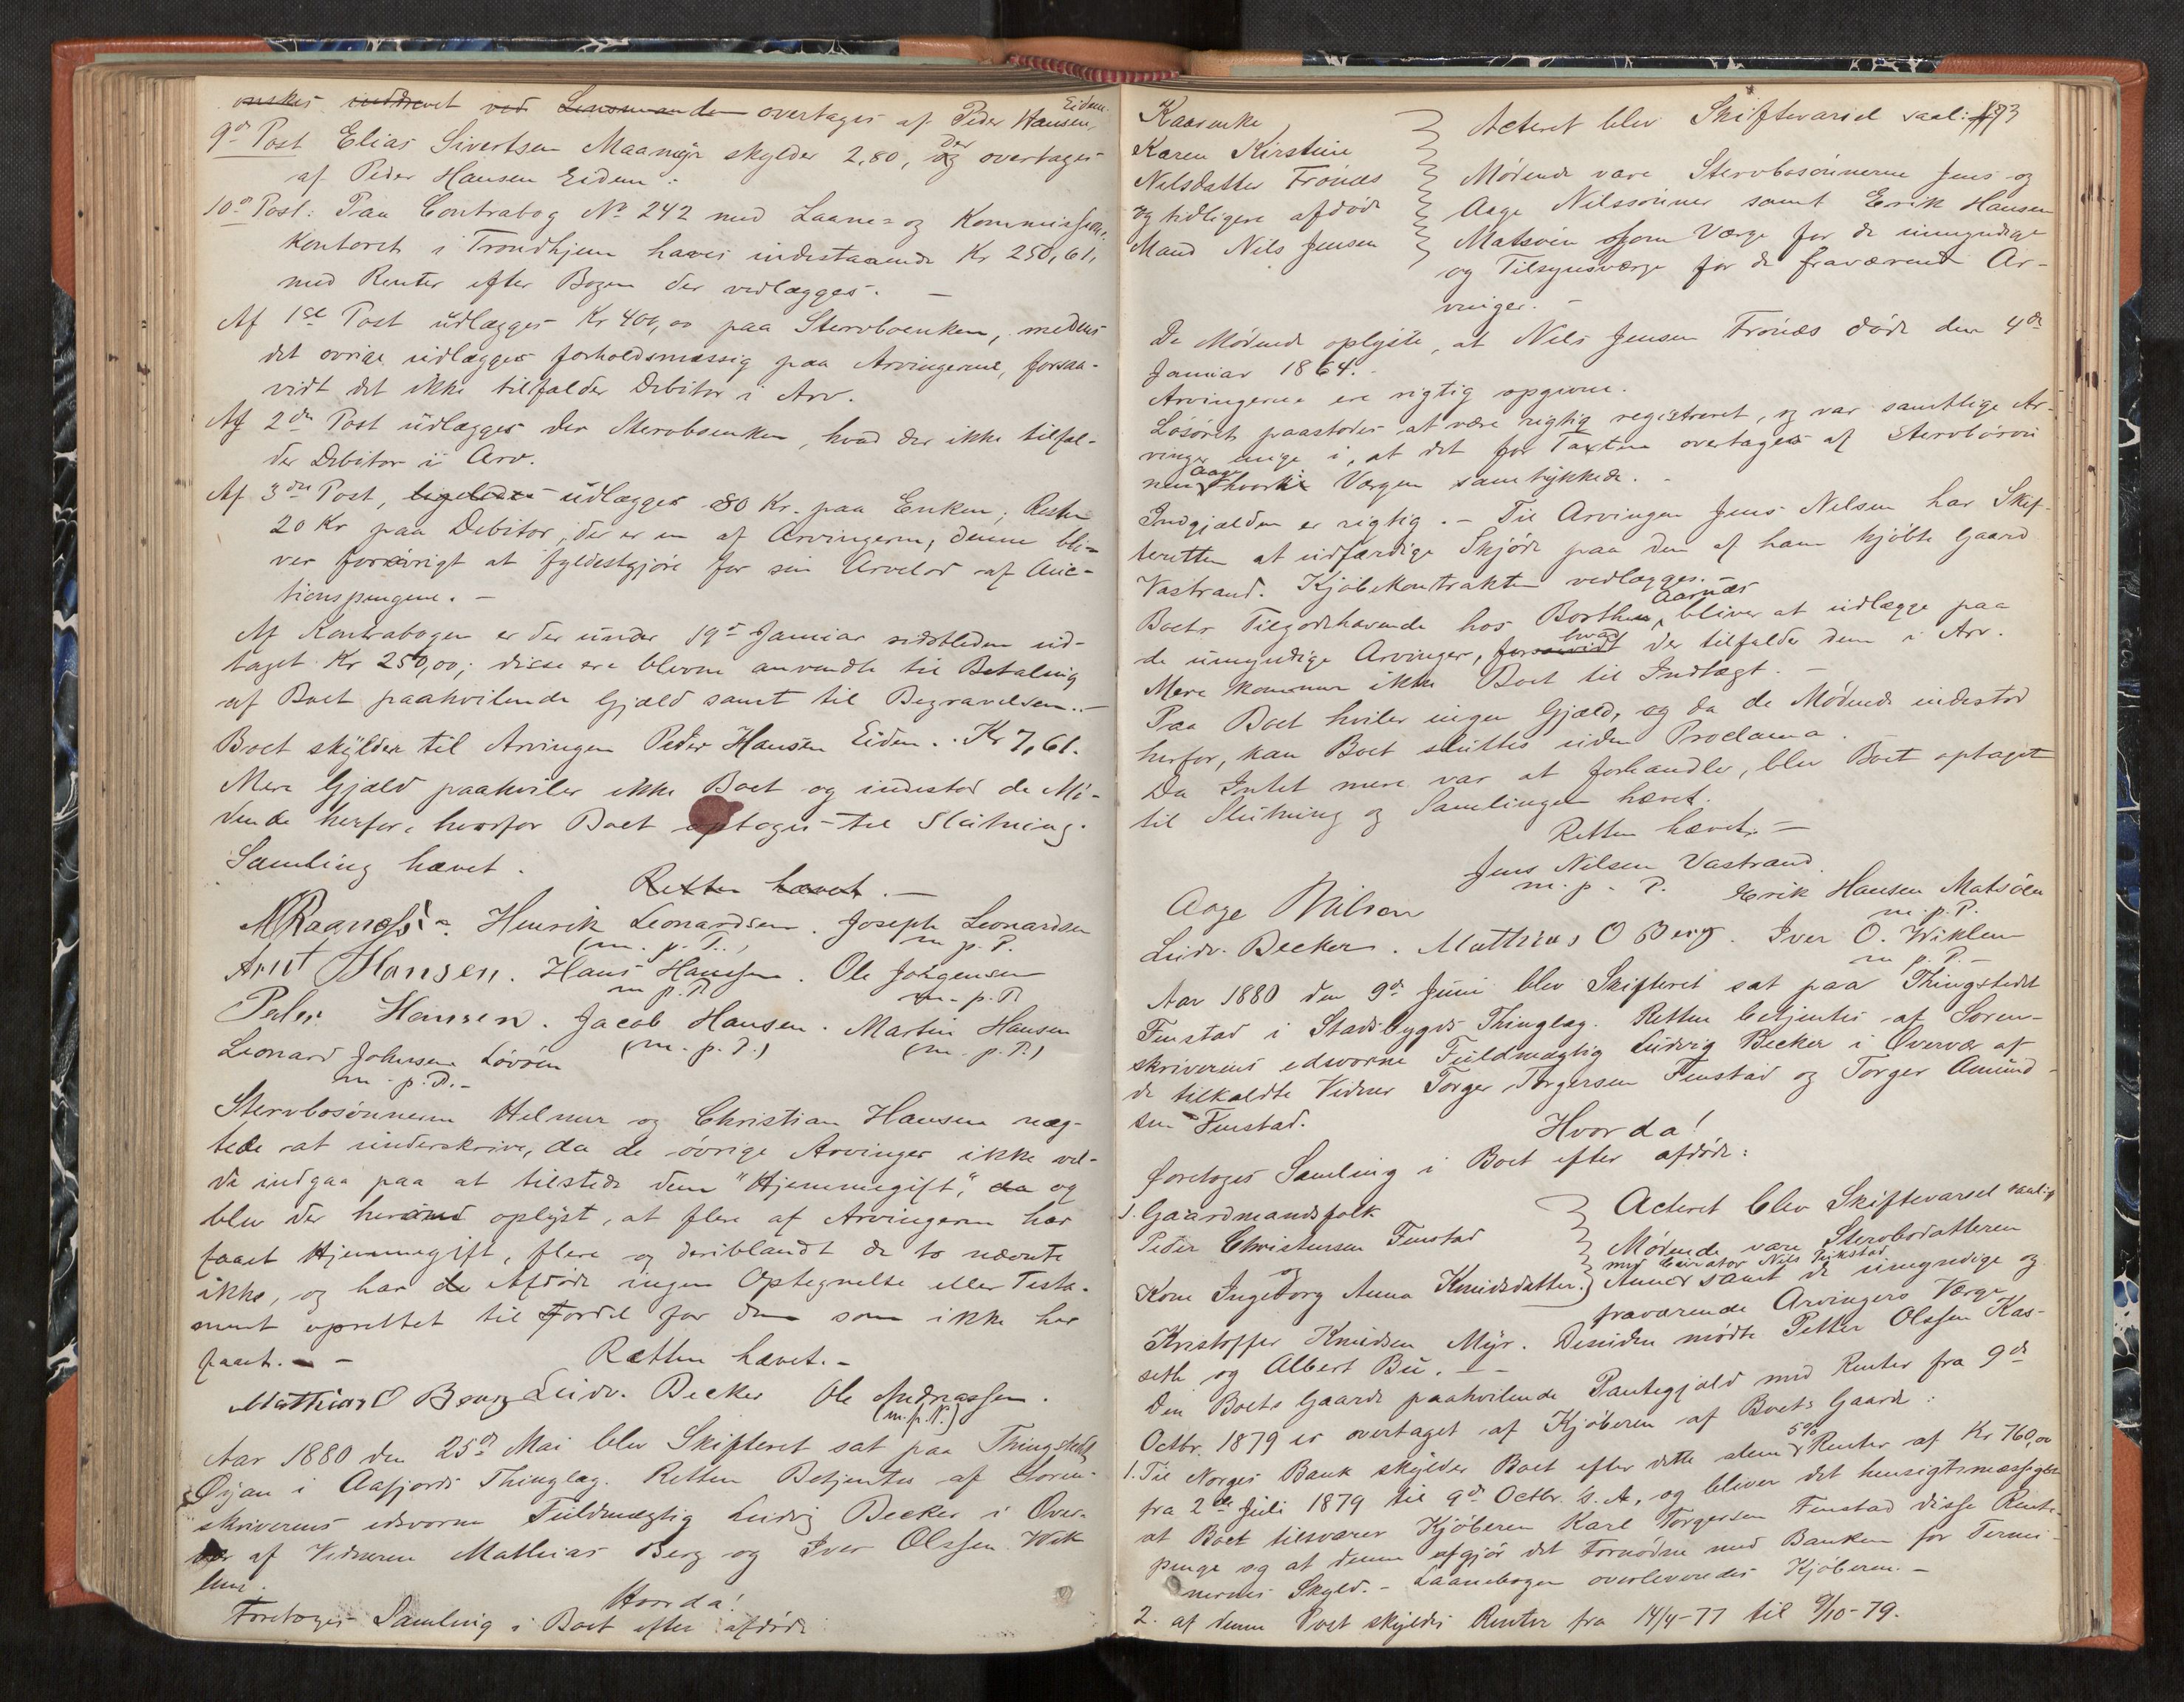 ønskes inddrevet ved Lensmanden overtages af Peder Hansen Eidem.
9de Post Elias Sivertsen Maamyr skylder 2,80, og der overtages
af Peder Hansen Eidem.
10de Post: Paa Contrabog No 242 med Laane- og Kommissions-
kontoret i Trondhjem haves indestaaende Kr 250,61,
med Renter efter Bogen der vedlægges. —
Af 1ste Post udlægges Kr 400,00 paa Stervboenken, medens
det øvrige udlægges forholdsmæssig paa Arvingerne, forsaa-
vidt det ikke tilfalder Debitor i Arv.
Af 2den Post udlægges der Stervboenken, hvad der ikke tilfal-
der Debitor i Arv.
Af 3die Post, ligeledes udlægges 80 Kr. paa Enken; Resten
20 Kr paa Debitor, der er en af Arvingerne, denne bli-
ver forøvrigt at fyldestgjøre for sin Arvelod af Auc-
tionspengene. —
Af Kontrabogen er der under 19de Januar sidstleden ud-
taget Kr 250,00; disse ere blevne anvendte til Betaling
af Boet paahvilende Gjæld samt til Begravelsen. —
Boet skylder til Arvingen Peder Hansen Eidem.. Kr 7,61.
Mere Gjæld paahviler ikke Boet og indestod de Mø-
dende herfor, hvorfor Boet optoges til Slutning.
Samling hævet.
Retten hævet. —
Henrik Leonardsen. Joseph Leonardsen
(m. p. P.) m. p. P.
Arnt Hansen. Hans Hansen. Ole Jørgensen
m. p. P. m. p. P.
Peder Hansen. Jacob Hansen. Martin Hansen
(m. p. P.) (m. p. P.)
Leonard Johnsen Løvøen
m. p. P. —
Stervbosønnerne Helmer og Christian Hansen næg-
tede at underskrive, da de øvrige Arvinger ikke vil-
de indgaa paa at tilstede dem "Hjemmegift", da og
blev der herunder oplyst, at flere af Arvingerne har
faaet Hjemmegift, flere og deriblandt de to nævnte
ikke, og har de Afdøde ingen Optegnelse eller Testa-
ment oprettet til Fordel for dem som ikke har
faaet. — — Retten hævet. —
Matthias O Berg Ludv. Becker Ole Andreassen.
(m. p. P.)
Aar 1880 den 25de Mai blev Skifteret sat paa Thingstedet
Øyan i Aafjords Thinglag. Retten Betjentes af Soren-
skriverens edsvorne Fuldmægtig Ludvig Becker i Over-
vær af Vidnerne Mathias Berg og Iver Olsen Wik
lem.
Hvorda!
Foretoges Samling i Boet efter afdøde
193
Kaarenke
Karen Kirstine
Nilsdatter Frønes
og tidligere afdøde
Mand Nils Jensen
Acteret blev Skiftevarsel saal:
Mødende vare Stervbosønnerne Jens og
Aage Nilssønner samt Erik Hansen
Matsøen som Værge for de umyndige
og Tilsynsværge for de fraværende Ar-
vinger. —
De Mødende oplyste, at Nils Jensen Frønes døde den 4de
Januar 1864. —
Arvingerne ere rigtig opgivne.
Løsøret paastodes at være rigtig registreret, og var samtlige Ar-
vinger enige i, at det for Taxten overtages af Stervbosøn
nen Aage hvorki Værgen samtykkede. —
Indgjælden er rigtig. — Til Arvingen Jens Nilsen har Skif-
teretten at udfærdige Skjøde paa den af ham kjøbte Gaard
Vastrand. Kjøbekontrakten vedlægges. —
Boets Tilgodehavende hos Borthen Aarnæs, bliver at udlægge paa
de umyndige Arvinger, forsaavidt hvad der tilfalder dem i Arv.
Mere kommer ikke Boet til Indtægt. —
Paa Boet hviler ingen Gjæld, og da de Mødende indestod
herfor, kan Boet sluttes uden Proclama.
Da Intet mere var at forhandle, blev Boet optaget
til Slutning og Samlingen hævet.
Retten hævet. —
Jens Nilsen Vastrand
m. p. P.
Aage Nilsen Erik Hansen Matsøen
m. p. P.
Ludv. Becker. Matthias O Berg. Iver O. Wiklem
m. p. P. —
Aar 1880 den 9de Juni blev Skifteret sat paa Thingstedet
Fenstad i Stadsbygds Thinglag. Retten betjentes af Soren-
skriverens edsvorne Fuldmægtig Ludvig Becker i Overvær af
de tilkaldte Vidner Torger Torgersen Fenstad og Torger Amund-
sen Fenstad.
Hvorda!
foretoges Samling i Boet efter afdøde:
1. Gaardmandsfolk
Peder Christensen Fenstad
og
Kone Ingeborg Anna Knudsdatter.
Acteret blev Skiftevarsel saal:
Mødende vare Stervbodatteren
med Curator Nils Rikstad
Anne samt de umyndige og
fraværende Arvingers Værge
Kristoffer Knudsen Myr. Desuden mødte Petter Olsen Kas-
seth og Albert Bu. — —
Den Boets Gaarde paahvilende Pantegjæld med Renter fra 9de
Octbr. 1879 er overtaget af Kjøberen af Boets Gaard:
1. Til Norges Bank skylder Boet efter dette alene 5% Renter af Kr 760,00
fra 2den Juli 1879 til 9de Octbr. s. A., og bliver det hensigtsmæssigst
at Boet tilsvarer Kjøberen Karl Torgersen Fenstad disse Rente-
penge og at denne afgjør det Fornødne med Banken for Termi-
nernes Skyld. — Laanebogen overleveredes Kjøberen. —
2. af denne Post skyldes Renter fra 14/4-77 til 9/10-79.